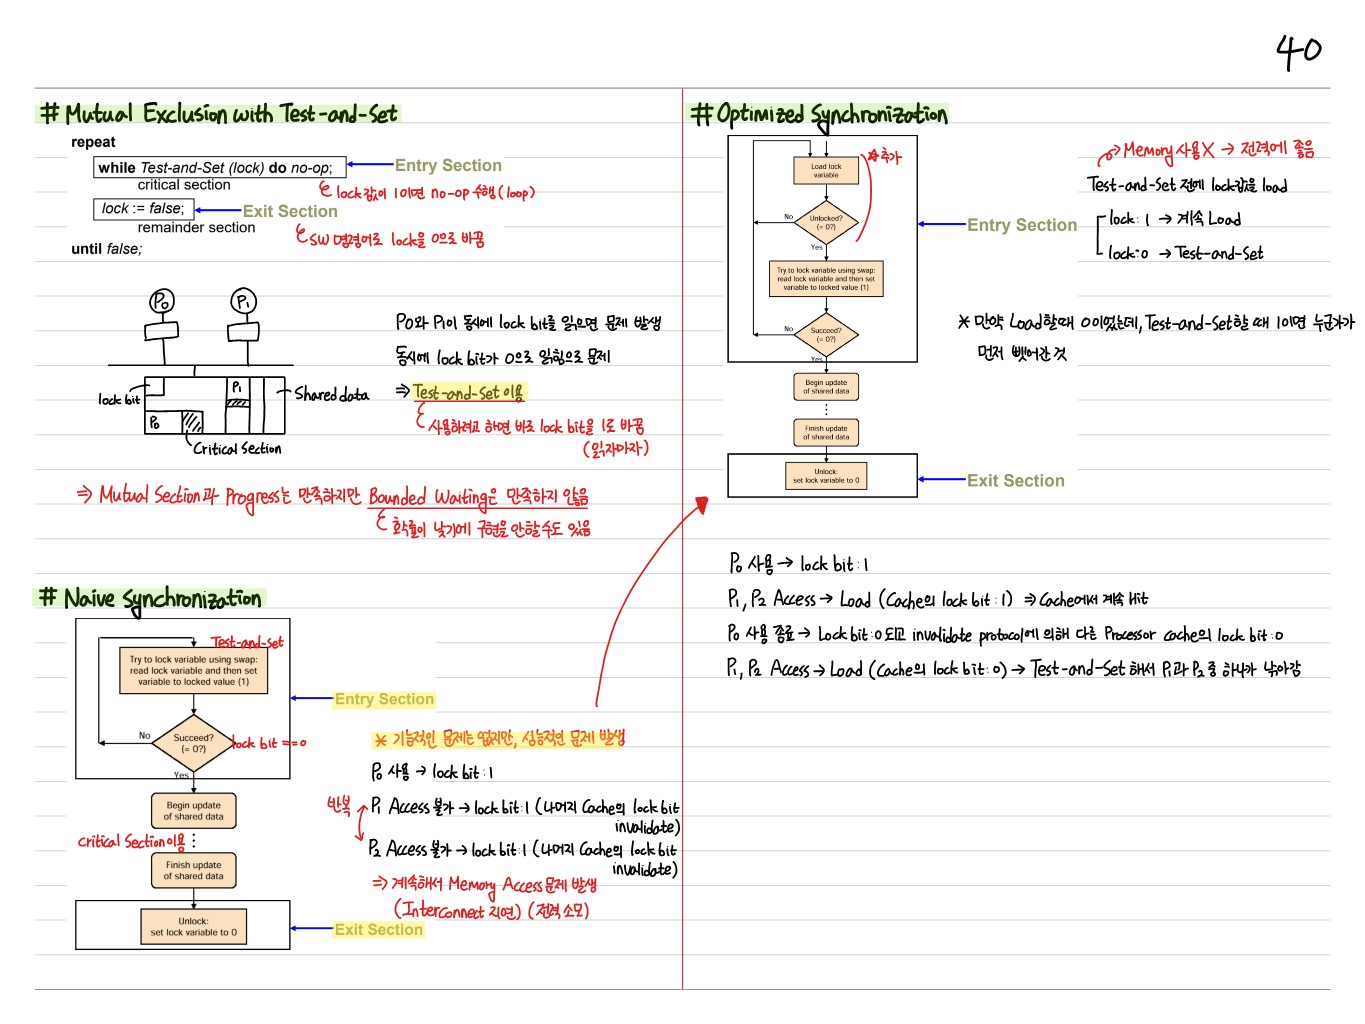 40
# Mutual Exclusion with Test-and-Set
repeat
while Test-and-Set (lock) do no-op;
Entry Section
critical section
lock값이 1이면 no-op 수행 (loop)
lock := false;
Exit Section
remainder section
SW 명령어로 lock을 0으로 바꿈
until false;
P0
P1
lock bit
P0
P1
Shared data
Critical Section
P0와 P1이 동시에 lock bit를 읽으면 문제 발생
동시에 lock bit가 0으로 읽힘으로 문제
⇒ Test-and-Set 이용
사용하려고 하면 바로 lock bit을 1로 바꿈
(읽자마자)
⇒ Mutual Section과 Progress는 만족하지만 Bounded Waiting은 만족하지 않음
확률이 낮기에 구현을 안할수도 있음
# Naive Synchronization
Test-and-set
Try to lock variable using swap:
read lock variable and then set
variable to locked value (1)
Entry Section
No
Succeed?
(= 0?)
lock bit == 0
Yes
Begin update
of shared data
Critical Section 이용
⋮
Finish update
of shared data
Unlock:
set lock variable to 0
Exit Section
* 기능적인 문제는 없지만, 성능적인 문제 발생
P0 사용 → lock bit : 1
반복
P1 Access 불가 → lock bit : 1 (나머지 Cache의 lock bit
invalidate)
P2 Access 불가 → lock bit : 1 (나머지 Cache의 lock bit
invalidate)
⇒ 계속해서 Memory Access 문제 발생
(Interconnect 지연) (전력 소모)
# Optimized Synchronization
Load lock
variable
추가
No
Unlocked?
(= 0?)
Yes
Entry Section
Try to lock variable using swap:
read lock variable and then set
variable to locked value (1)
No
Succeed?
(= 0?)
Yes
Begin update
of shared data
⋮
Finish update
of shared data
Unlock:
set lock variable to 0
Exit Section
Memory 사용X → 전력에 좋음
Test-and-Set 전에 lock값을 load
lock : 1 → 계속 Load
lock : 0 → Test-and-Set
* 만약 Load할때 0이었는데, Test-and-Set할 때 1이면 누군가가
먼저 뺏어간 것
P0 사용 → lock bit : 1
P1, P2 Access → Load (Cache의 lock bit : 1) ⇒ Cache에서 계속 Hit
P0 사용 종료 → Lock bit : 0 되고 invalidate protocol에 의해 다른 Processor cache의 lock bit : 0
P1, P2 Access → Load (Cache의 lock bit : 0) → Test-and-Set 해서 P1과 P2 중 하나가 낚아감